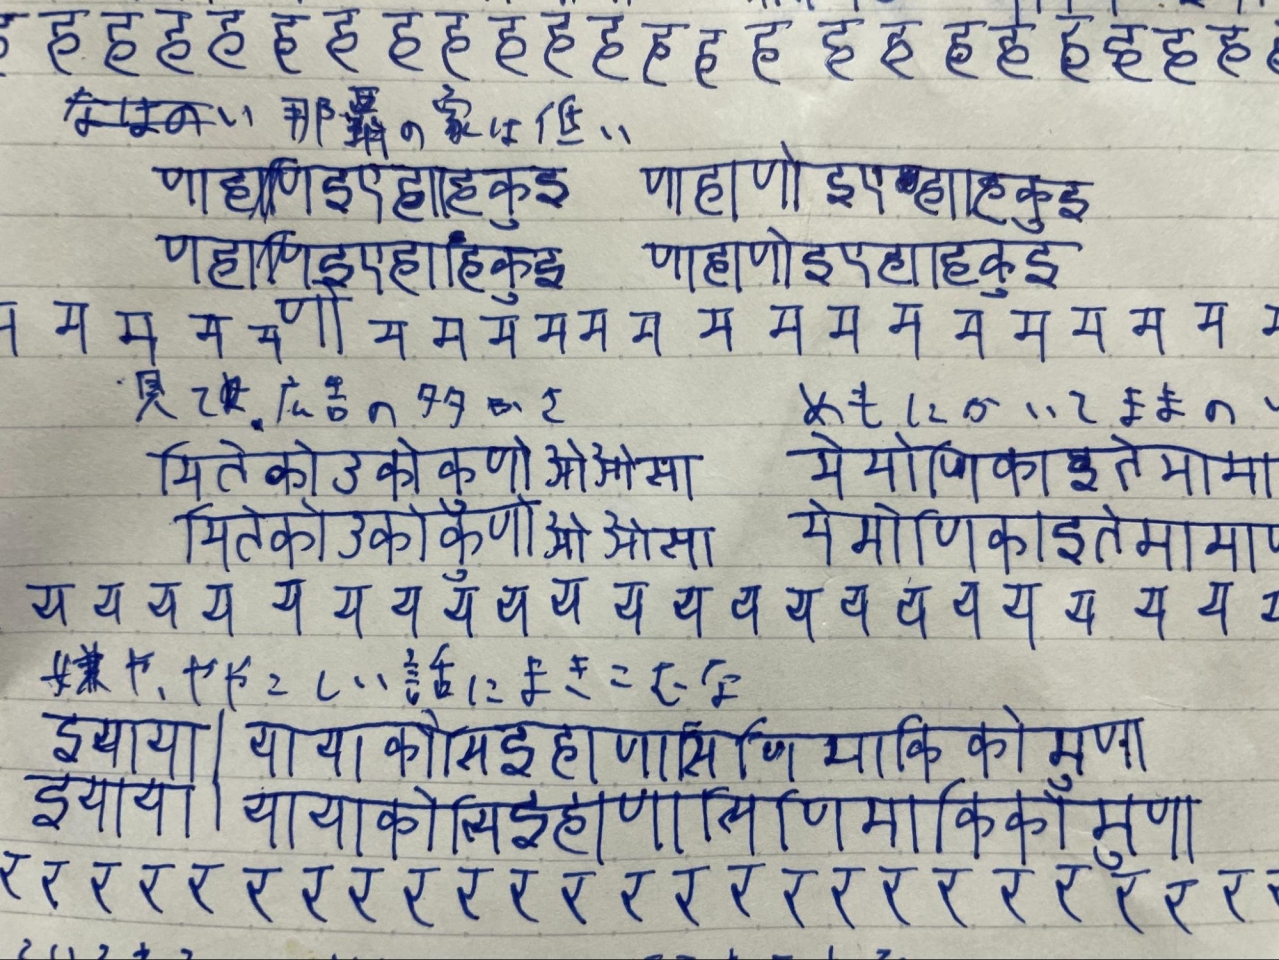 ह ह ह ह ह ह ह ह ह ह ह ह ह ह ह ह ह ह ह ह ह ह ह
なはのい 那覇の家は低い
णाहाणिइएहाहिकुइ णाहाणोइएहाहिकुइ
णहाणिइएहाहिकुइ णाहाणोइएहाहिकुइ
म म म म म णो म म म म म म म म म म म म म म म म
見て来.広告の タタかさ
मितेकोउकोकुणोओओसा मेमोणिकाइतेमामा
मितेकोउकोकुणोओओसा मेमोणिकाइतेमामा
य य य य य य य य य य य य य य य य य य य य य य
嫌や、ややこしい話にまきこむな
इयाया। यायाकोसिइहाणासिणिमाकिकोमुणा
इयाया। यायाकोसिइहाणासिणिमाकिकोमुणा
र र र र र र र र र र र र र र र र र र र र र र र र